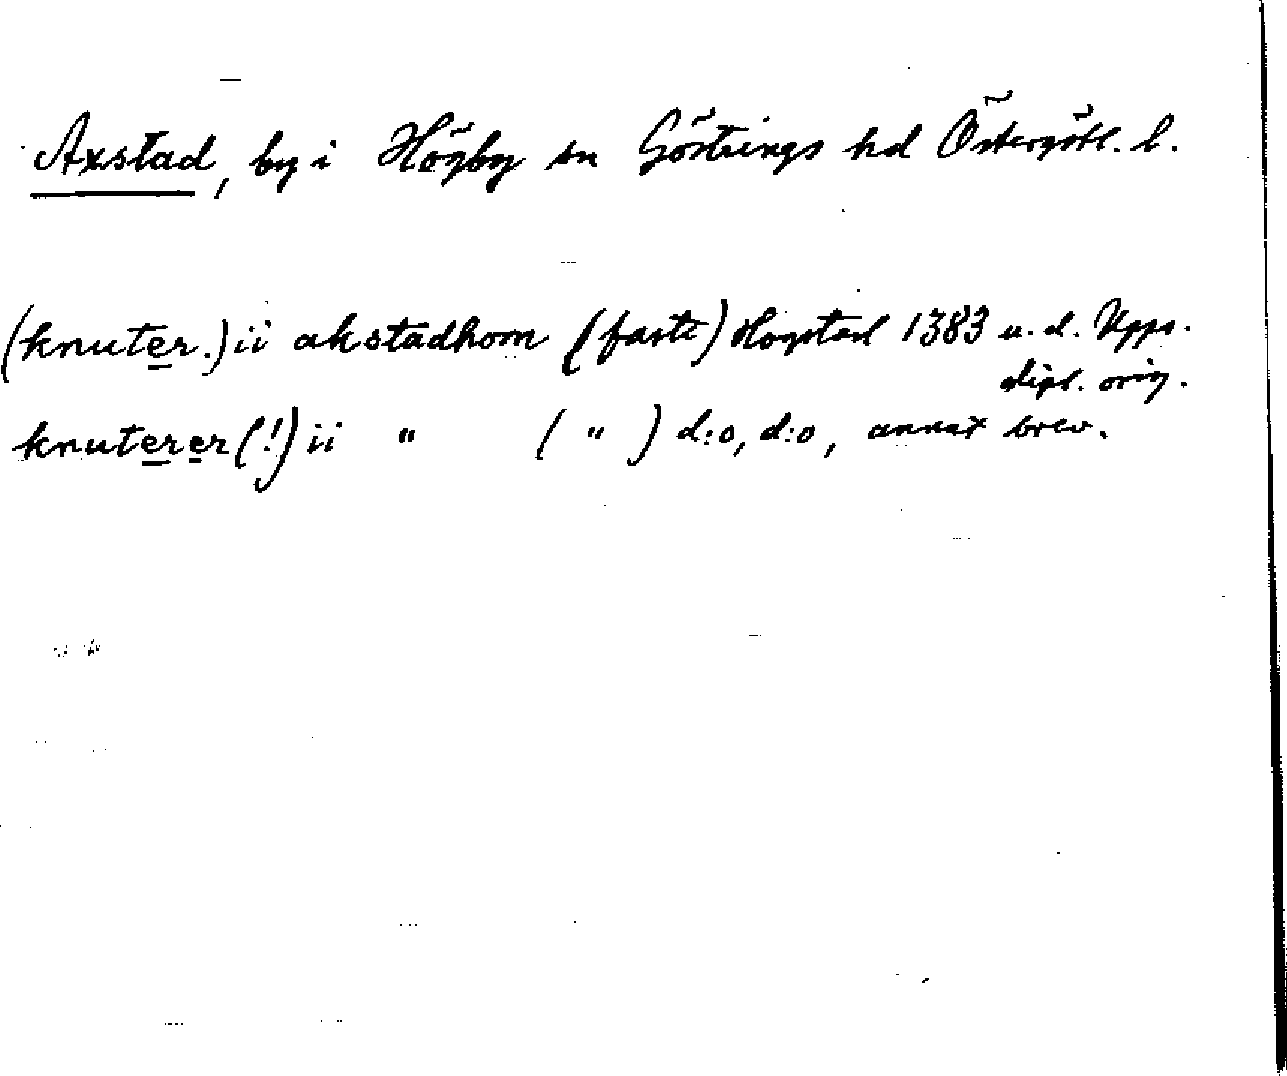 Axstad, by i Högby sn Göstrings hd Östergötl. l.
(knuter.) ii akstadhom (faste) Hogstad 1383 u. d. Upps.
dipl. orig.
knuterer (!) ii " ( " ) d:o, d:o, annat brev.